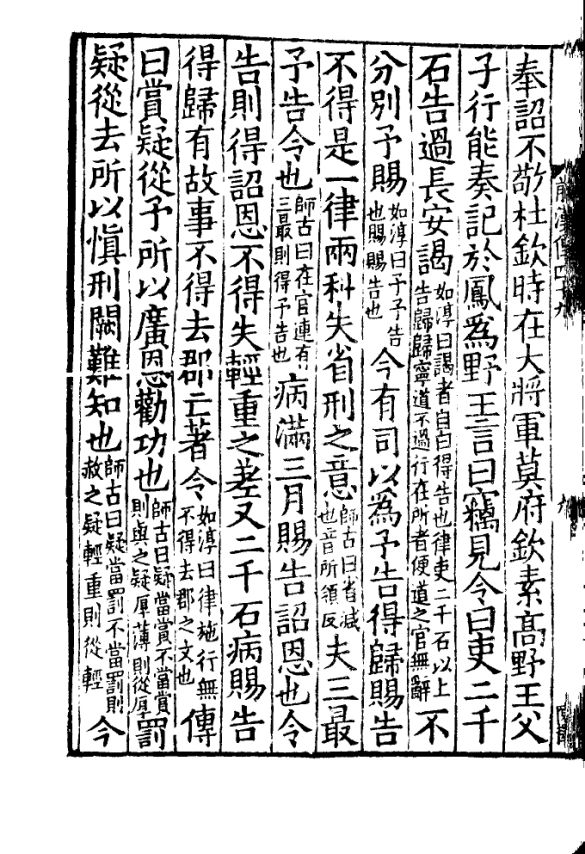 奉詔不敬杜欽時在大將軍莫府欽素高野王父
子行能奏記於鳳爲野王言曰竊見令曰吏二千
石告過長安謁如淳曰謁者自白得告也律吏二千石以上告歸歸寧道不過行在所者便道之官無辭不
分別予賜如淳曰予予告也賜賜告也今有司以爲予告得歸賜告
不得是一律兩科失省刑之意師古曰省減也音所領反夫三最
予告令也師古曰在官連有三最則得予告也病滿三月賜告詔恩也令
告則得詔恩不得失輕重之差又二千石病賜告
得歸有故事不得去郡亡著令如淳曰律施行無不得去郡之文也傳
曰賞疑從予所以廣恩勸功也師古曰疑當賞不當賞則與之疑厚薄則從厚罰
疑從去所以愼刑闕難知也師古曰疑當罰不當罰則赦之疑輕重則從輕今